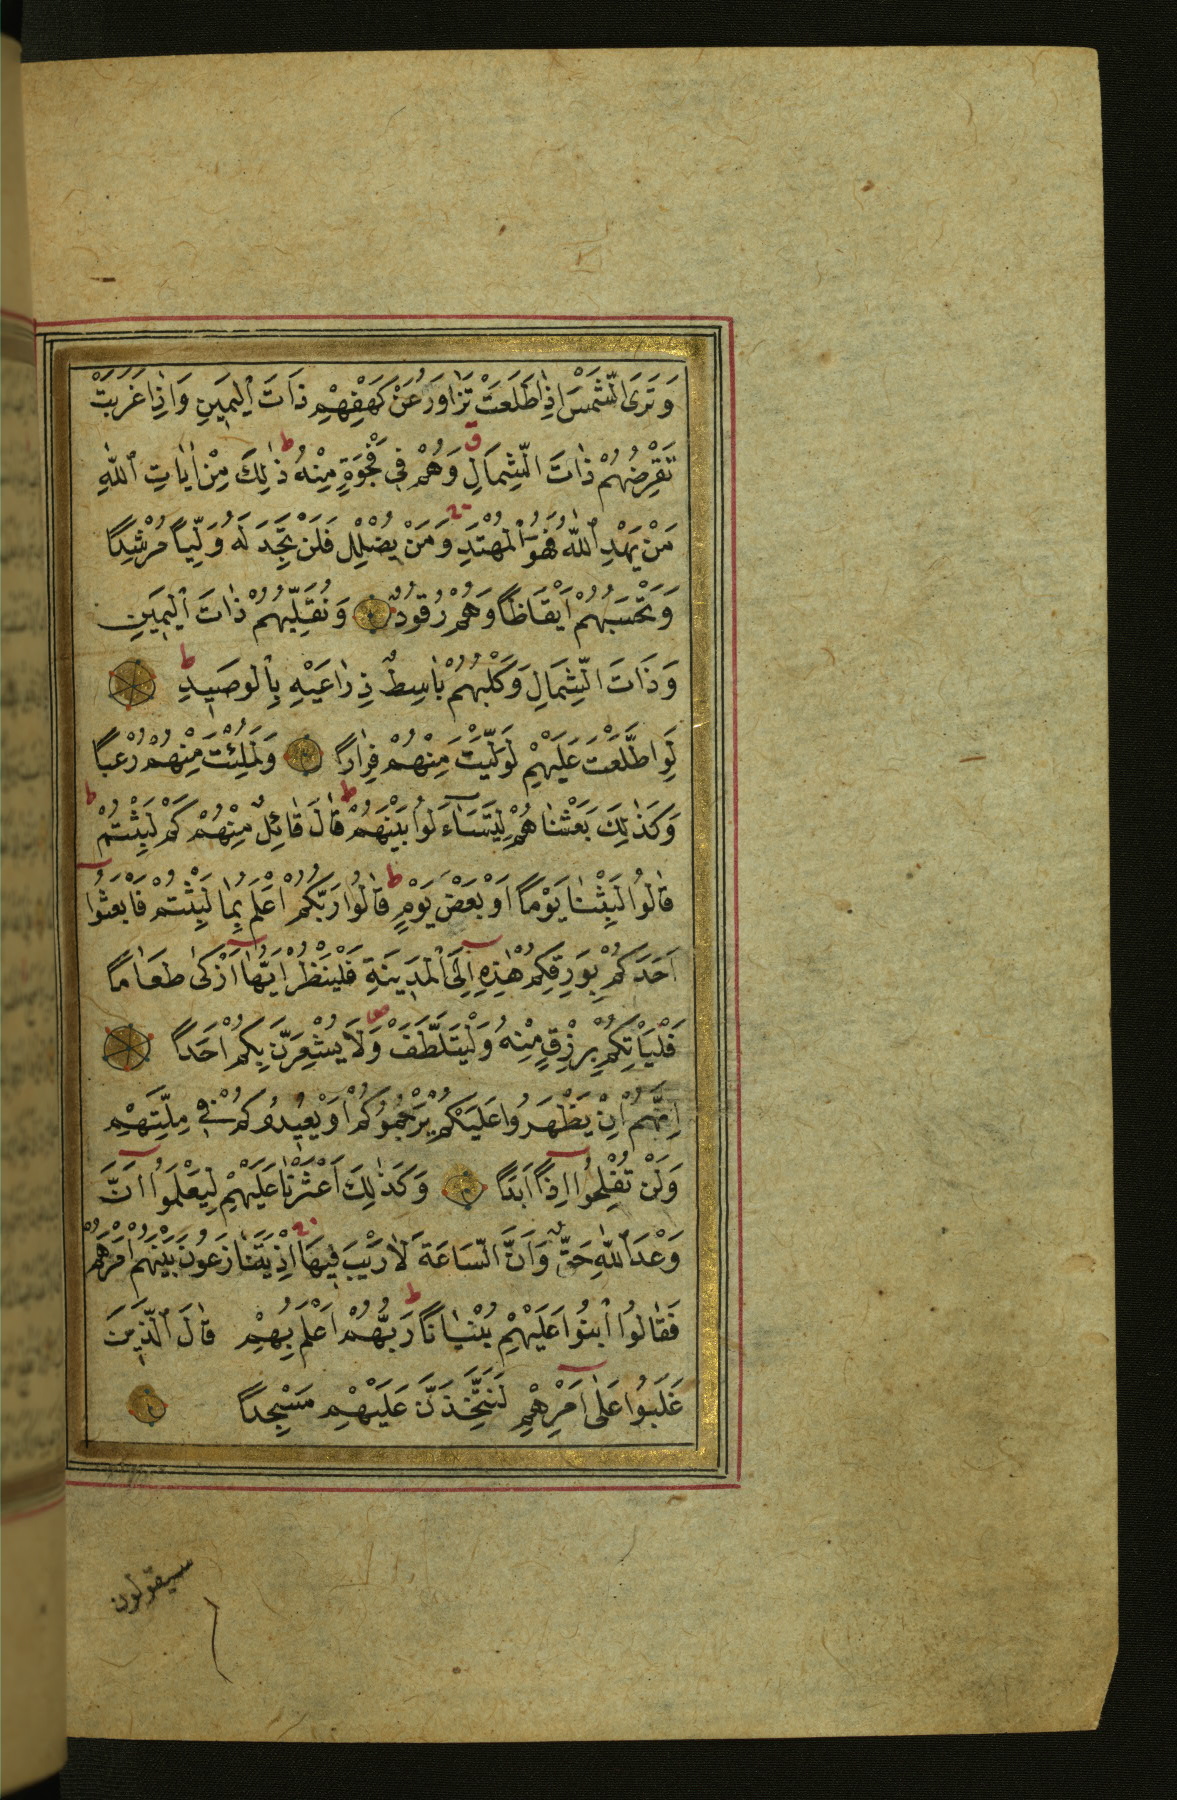 وَتَرَى الشَّمْسَ اِذَا طَلَعَتْ تَزَاوَرُ عَنْ كَهْفِهِمْ ذَاتَ الْيَمِينِ وَاِذَا غَرَبَتْ
تَقْرِضُهُمْ ذَاتَ الشِّمَالِ وَهُمْ فِي فَجْوَةٍ مِنْهُ ذٰلِكَ مِنْ اٰيَاتِ اللّٰهِ
مَنْ يَهْدِ اللّٰهُ فَهُوَ الْمُهْتَدِ وَمَنْ يُضْلِلْ فَلَنْ تَجِدَ لَهُ وَلِيًّا مُرْشِدًا
وَتَحْسَبُهُمْ اَيْقَاظًا وَهُمْ رُقُودٌ وَنُقَلِّبُهُمْ ذَاتَ الْيَمِينِ
وَذَاتَ الشِّمَالِ وَكَلْبُهُمْ بَاسِطٌ ذِرَاعَيْهِ بِالْوَصِيدِ
لَوِ اطَّلَعْتَ عَلَيْهِمْ لَوَلَّيْتَ مِنْهُمْ فِرَارًا وَلَمُلِئْتَ مِنْهُمْ رُعْبًا
وَكَذٰلِكَ بَعَثْنَاهُمْ لِيَتَسَاءَلُوا بَيْنَهُمْ قَالَ قَائِلٌ مِنْهُمْ كَمْ لَبِثْتُمْ
قَالُوا لَبِثْنَا يَوْمًا اَوْ بَعْضَ يَوْمٍ قَالُوا رَبُّكُمْ اَعْلَمُ بِمَا لَبِثْتُمْ فَابْعَثُوا
اَحَدَكُمْ بِوَرِقِكُمْ هٰذِهِ اِلَى الْمَدِينَةِ فَلْيَنْظُرْ اَيُّهَا اَزْكٰى طَعَامًا
فَلْيَأْتِكُمْ بِرِزْقٍ مِنْهُ وَلْيَتَلَطَّفْ وَلَا يُشْعِرَنَّ بِكُمْ اَحَدًا
اِنَّهُمْ اِنْ يَظْهَرُوا عَلَيْكُمْ يَرْجُمُوكُمْ اَوْ يُعِيدُوكُمْ فِي مِلَّتِهِمْ
وَلَنْ تُفْلِحُوا اِذًا اَبَدًا وَكَذٰلِكَ اَعْثَرْنَا عَلَيْهِمْ لِيَعْلَمُوا اَنَّ
وَعْدَ اللّٰهِ حَقٌّ وَاَنَّ السَّاعَةَ لَا رَيْبَ فِيهَا اِذْ يَتَنَازَعُونَ بَيْنَهُمْ اَمْرَهُمْ
فَقَالُوا ابْنُوا عَلَيْهِمْ بُنْيَانًا رَبُّهُمْ اَعْلَمُ بِهِمْ قَالَ الَّذِينَ
غَلَبُوا عَلٰى اَمْرِهِمْ لَنَتَّخِذَنَّ عَلَيْهِمْ مَسْجِدًا
سيقولون